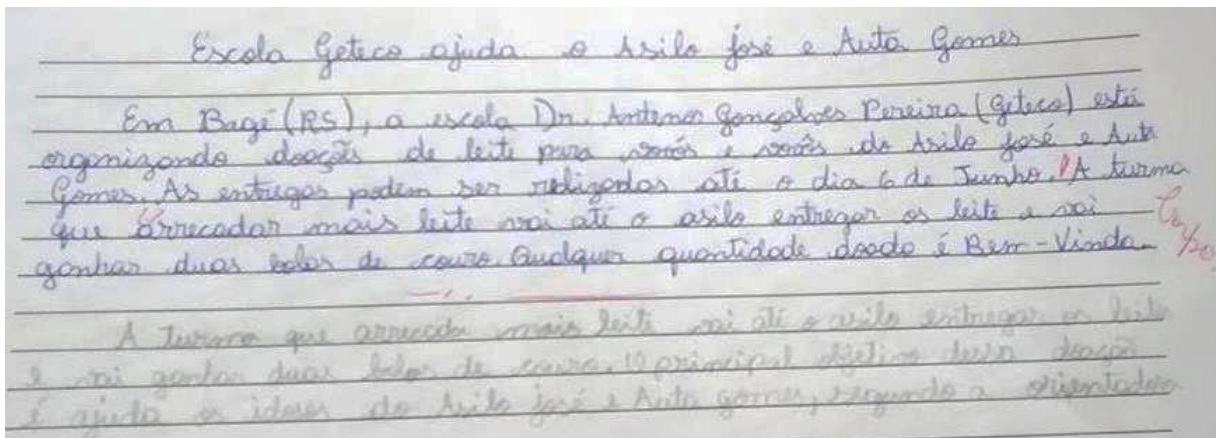 Escola Geteco ajuda o Asilo José e Auta Gomes
Em Bagé (RS), a escola Dr. Antenor Gonçalves Pereira (Geteco) está
organizando doações de leite para vovós e vovôs do Asilo José e Auta
Gomes. As entregas podem ser realizadas até o dia 6 de Junho. A turma
que arrecadar mais leite vai até o asilo entregar os leite e vai
ganhar duas bolas de couro. Qualquer quantidade doado é Bem-Vinda.
A Turma que arrecada mais leite vai até o asilo entregar os leite
e vai ganhar duas bolas de couro. O principal objetivo dessa doação
é ajuda os idosos do Asilo José e Auta gomes, segundo a orientadora